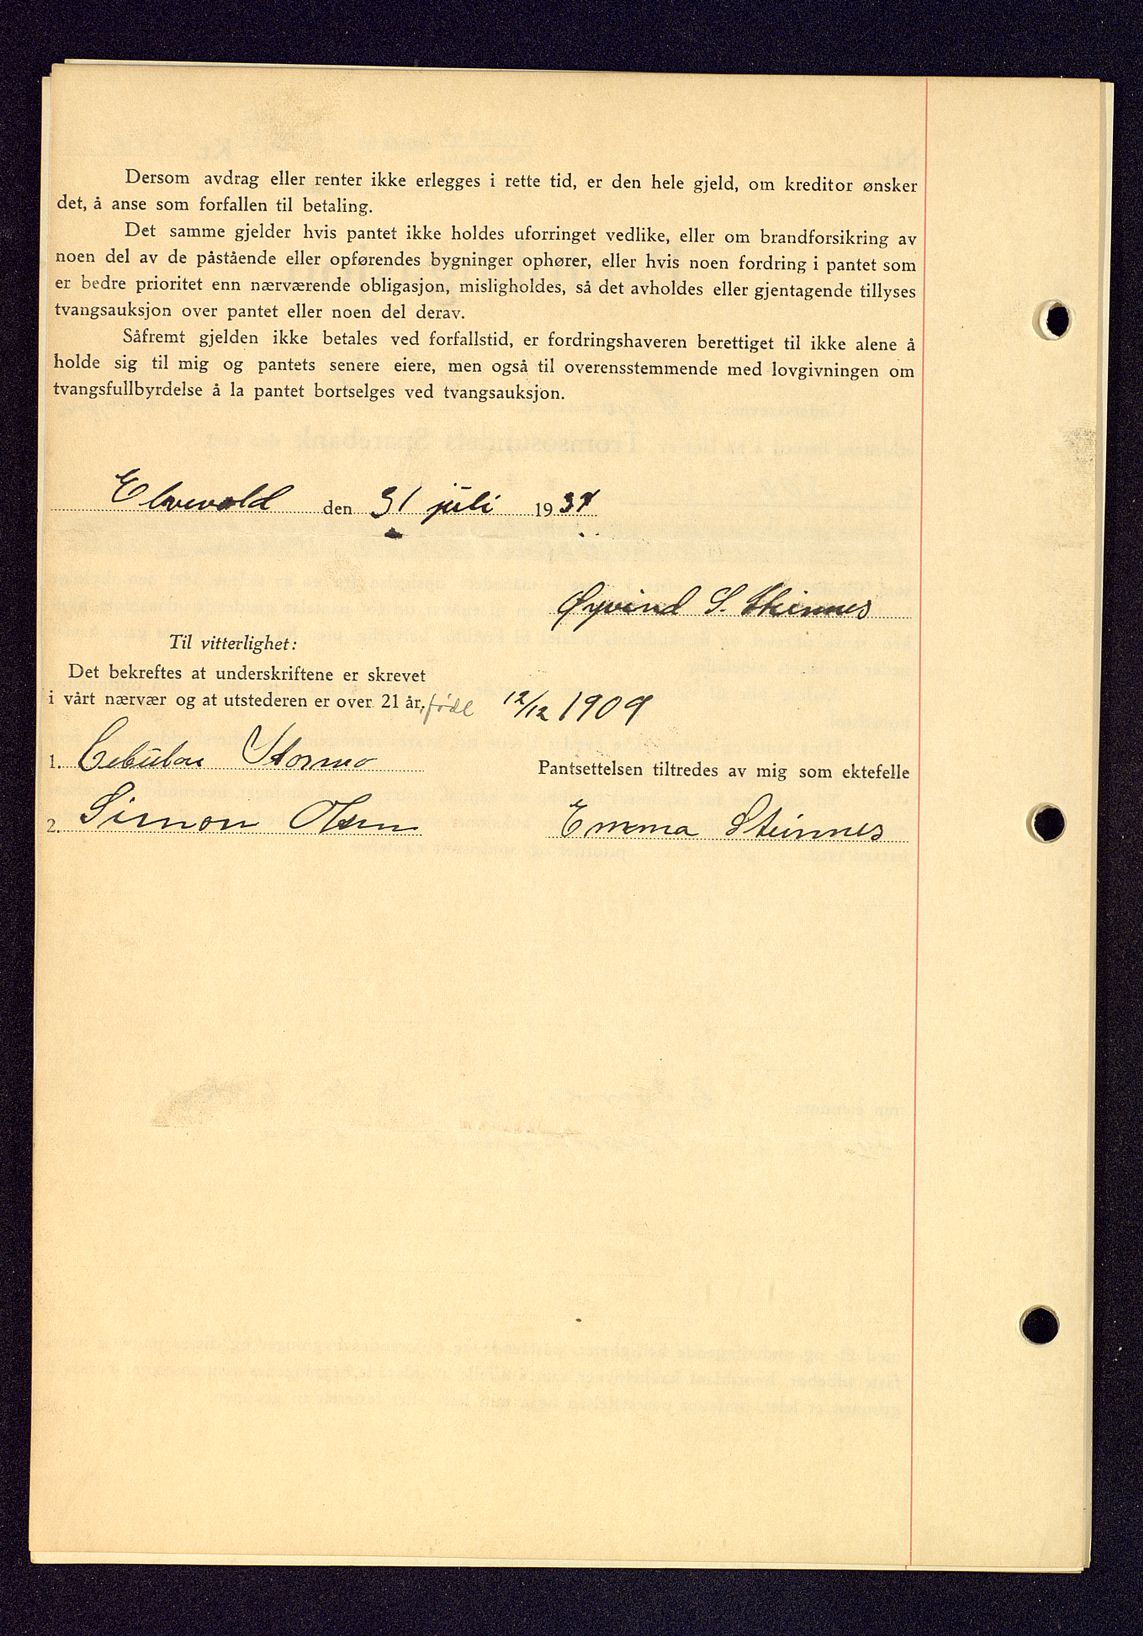 Dersom avdrag eller renter ikke erlegges i rette tid, er den hele gjeld, om kreditor ønsker
det, å anse som forfallen til betaling.
Det samme gjelder hvis pantet ikke holdes uforringet vedlike, eller om brandforsikring av
noen del av de påstående eller opførendes bygninger ophører, eller hvis noen fordring i pantet som
er bedre prioritet enn nærværende obligasjon, misligholdes, så det avholdes eller gjentagende tillyses
tvangsauksjon over pantet eller noen del derav.
Såfremt gjelden ikke betales ved forfallstid, er fordringshaveren berettiget til ikke alene å
holde sig til mig og pantets senere eiere, men også til overensstemmende med lovgivningen om
tvangsfullbyrdelse å la pantet bortselges ved tvangsauksjon.
Elvevold den 31 juli 1937
Øyvind S. Steinnes
Til vitterlighet:
Det bekreftes at underskriftene er skrevet
i vårt nærvær og at utstederen er over 21 år, føde 12/12 1909
1. Stormo
Pantsettelsen tiltredes av mig som ektefelle
2. Simon Olsen
Emma Steinnes